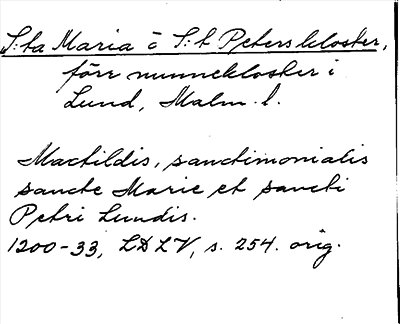 S:ta Maria o S:t Peters kloster,
förr nunnekloster i
Lund, Malm. l.
Mactildis, sanctimonialis
sancte Marie et sancti
Petri Lundis.
1200-33, LDLV, s. 254. orig.